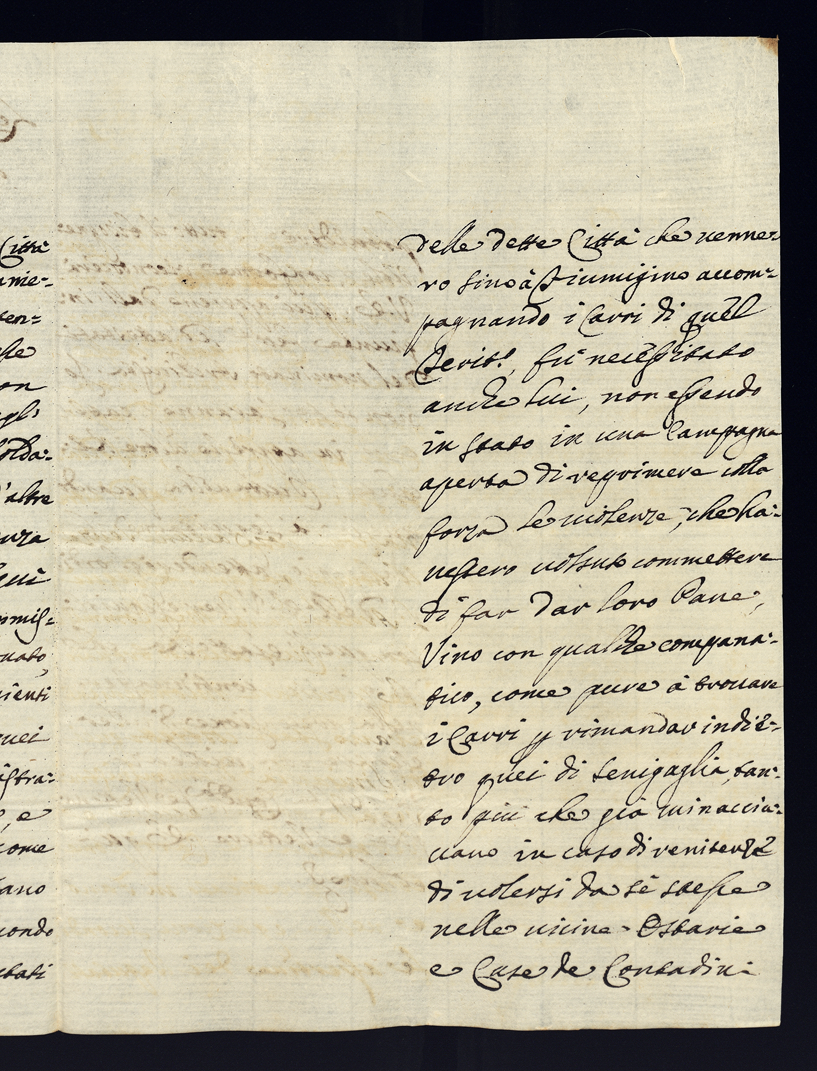 Città
nnie-
ten-
se
on
egl'
olda-
d'altre
nza
qui
mmis-
nato,
ienti
quei
istra-
, e
come
ano
ondo
tati
delle dette Città che venne-
ro sino à Fiumigino accom-
pagnando i Carri di quel
Territ.°, fù necessitato
anche lui, non essendo
in stato in una Campagna
aperta di reprimere colla
forza le violenze, che ha-
vessero volsuto commettere
di far dar loro Pane,
Vino con qualche compana-
tico, come pure à trovare
i Carri p rimandar indie-
tro quei di Senigaglia, tan-
to più che già minaccia-
vano in caso di renitenza
di volersi da sè stesse
nelle vicine Ostarie
e Case de Contadini